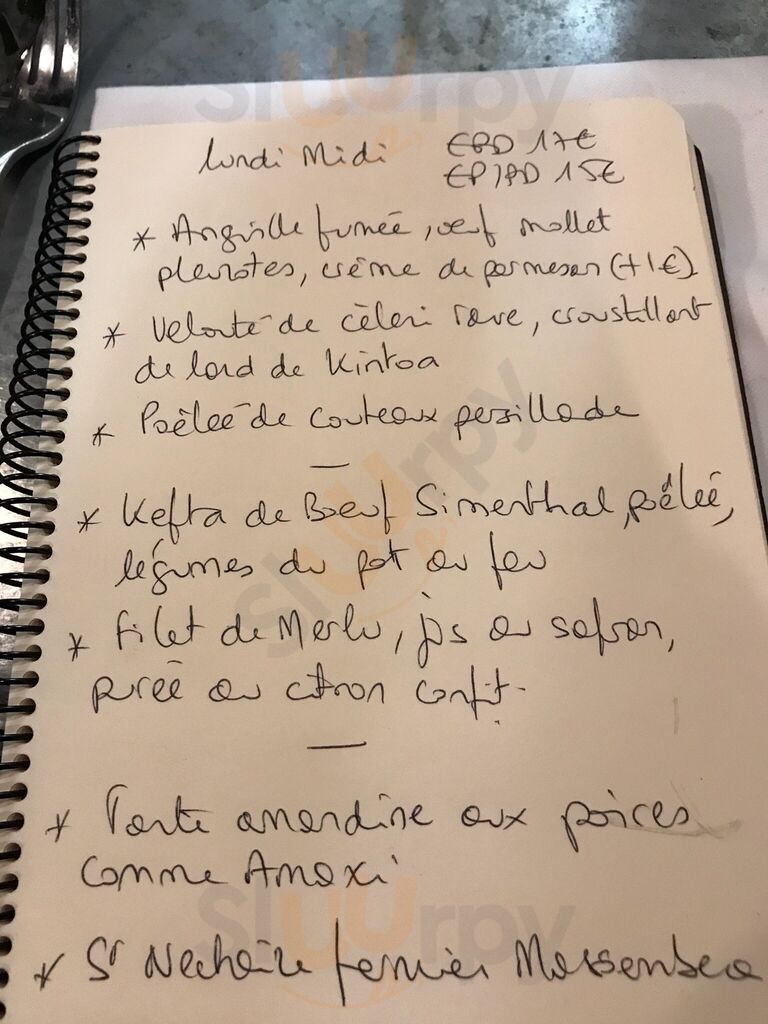 lundi Midi EPD 17€
EP/PD 15€
* Anguille fumée, oeuf mollet
pleurotes, crème de parmesan (+1€)
* Velouté de cèleri rave, croustillant
de lard de Kintoa
* Poêlée de couteaux persillade
—
* Kefta de Boeuf Simenthal, poêlée,
légumes du pot au feu
* Filet de Merlu, jus au safran,
purée au citron confit.
—
* Tarte amandine aux poires
comme Amaxi
* St Nectaire fermier
Sluurpy
Sluurpy
Sluurpy